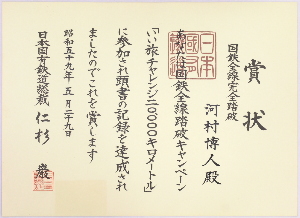 賞状
国鉄全線完全踏破
河村博人殿
あなたは国鉄全線踏破キャンペーン
「いい旅チャレンジ二〇〇〇〇キロメートル」
に参加され頭書の記録を達成され
ましたのでこれを賞します
昭和五十九年五月二十九日
日本国有鉄道総裁 仁杉 巖